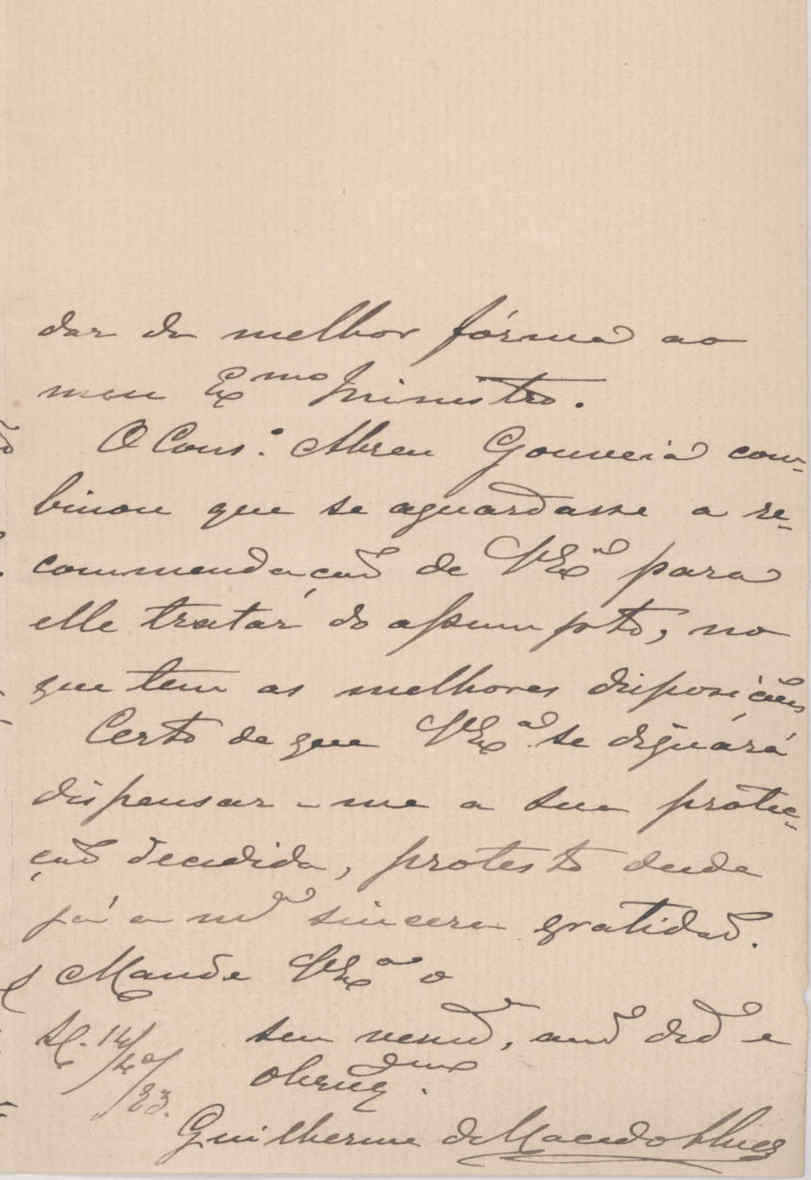 dar da melhor fórma ao
meu Ex.mo Ministro.
O Cons.º Abreu Gouveia com-
binou que se aguardasse a re-
commendação de V Ex.ª para
elle tratar do assumpto, no
que tem as melhores disposições
Certo de que V Ex.ª se dignará
dispensar-me a sua protec-
ção decidida, protesto desde
já a m.ª sincera gratidão.
Mande V Ex.ª o
seu vener.
obrig.
Guilherme de Macedo